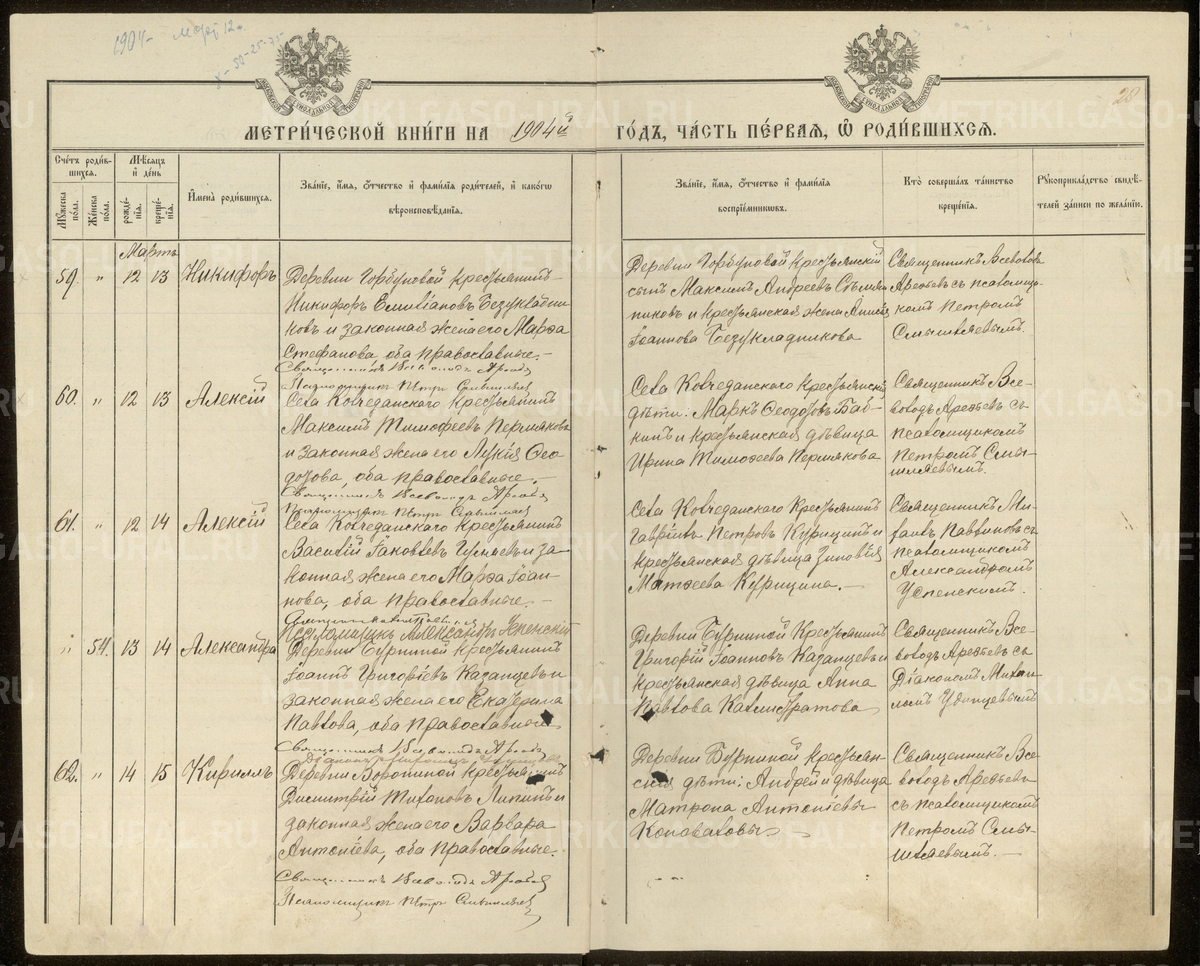 1904- март 12.
28
МЕТРИ́ЧЕСКОЙ КНИ́ГИ НА 1904й ГО́ДЪ, ЧА́СТЬ ПЕ́РВАЯ, Ѡ РОДИ́ВШИХСЯ.
Счетъ роди́вшихся.
Мужеска пола.
Женска пола.
Мѣсяцъ и день
рожденія.
крещенія.
Имена роди́вшихся.
Званіе, имя, отчество и фамилія родителей, и какогѡ
вѣроисповѣданія.
Званіе, имя, отчество и фамилія
воспріемникѡвъ.
Кто совершалъ таинство
крещенія.
Рукоприкладство свидѣ-
телей записи по желанію.
Мартъ
59. " 12 13 Никифоръ
Деревни Горбуновой крестьянинъ
Никифоръ Емиліановъ Безукладни-
ковъ и законная жена его Марѳа
Стефанова, оба православные.-
Священникъ Всеволодъ Арефьев
Псаломщикъ Петръ Смышляевъ
Деревни Горбуновой крестьянскій
сынъ Максимъ Андреевъ
и крестьянская жена
Іоаннова Безукладникова
Священникъ Всеволодъ
Арефьевъ съ псаломщи-
комъ Петромъ
Смышляевымъ.
60. " 12 13 Алексій
Села Колчеданскаго крестьянинъ
Максимъ Тимофеевъ Пермяковъ
и законная жена его Лукія Ѳео-
дозова, оба православные.-
Священникъ Всеволодъ Арефьев
Псаломщикъ Петръ Смышляевъ
Села Колчеданскаго крестьянскія
дѣти: Маркъ Ѳеодозовъ Баб-
кинъ и крестьянская дѣвица
Ирина Тимоѳеева Пермякова
Священникъ Все-
володъ Арефьевъ съ
псаломщикомъ
Петромъ Смы-
шляевымъ.
61. " 12 14 Алексій
Села Колчеданскаго крестьянинъ
Василій Іаковлевъ и за-
конная жена его Марѳа Іоан-
нова, оба православные.-
Псаломщикъ Александръ Успенскій
Села Колчеданскаго крестьянинъ
Гавріилъ Петровъ Курицынъ и
крестьянская дѣвица Зиновія
Матѳеева Курицина.-
Священникъ Ми-
хаилъ съ
псаломщикомъ
Александромъ
Успенскимъ.
" 54. 13 14 Александра
Деревни Бурниной крестьянинъ
Іоаннъ Григоріевъ Казанцевъ и
законная жена его Екатерина
Павлова, оба православные.
Священникъ Всеволодъ Арефьев
Деревни Бурниной крестьянинъ
Григорій Іоанновъ Казанцевъ и
крестьянская дѣвица Анна
Павлова Калистратова
Священникъ Все-
володъ Арефьевъ съ
Діакономъ Михаи-
ломъ Удинцевымъ
62. " 14 15 Кириллъ
Деревни Ворониной крестьянинъ
Димитрій Тихоновъ Липинъ и
законная жена его Варвара
Антоніева, оба православные.
Священникъ Всеволодъ Арефьев
Псаломщикъ Петръ Смышляевъ
Деревни Бурниной крестьян-
скія дѣти: Андрей и дѣвица
Матрона Антоніевы
Коноваловы
Священникъ Все-
володъ Арефьевъ
съ псаломщикомъ
Петромъ Смы-
шляевымъ.-
METRIKI.GASO-URAL.RU